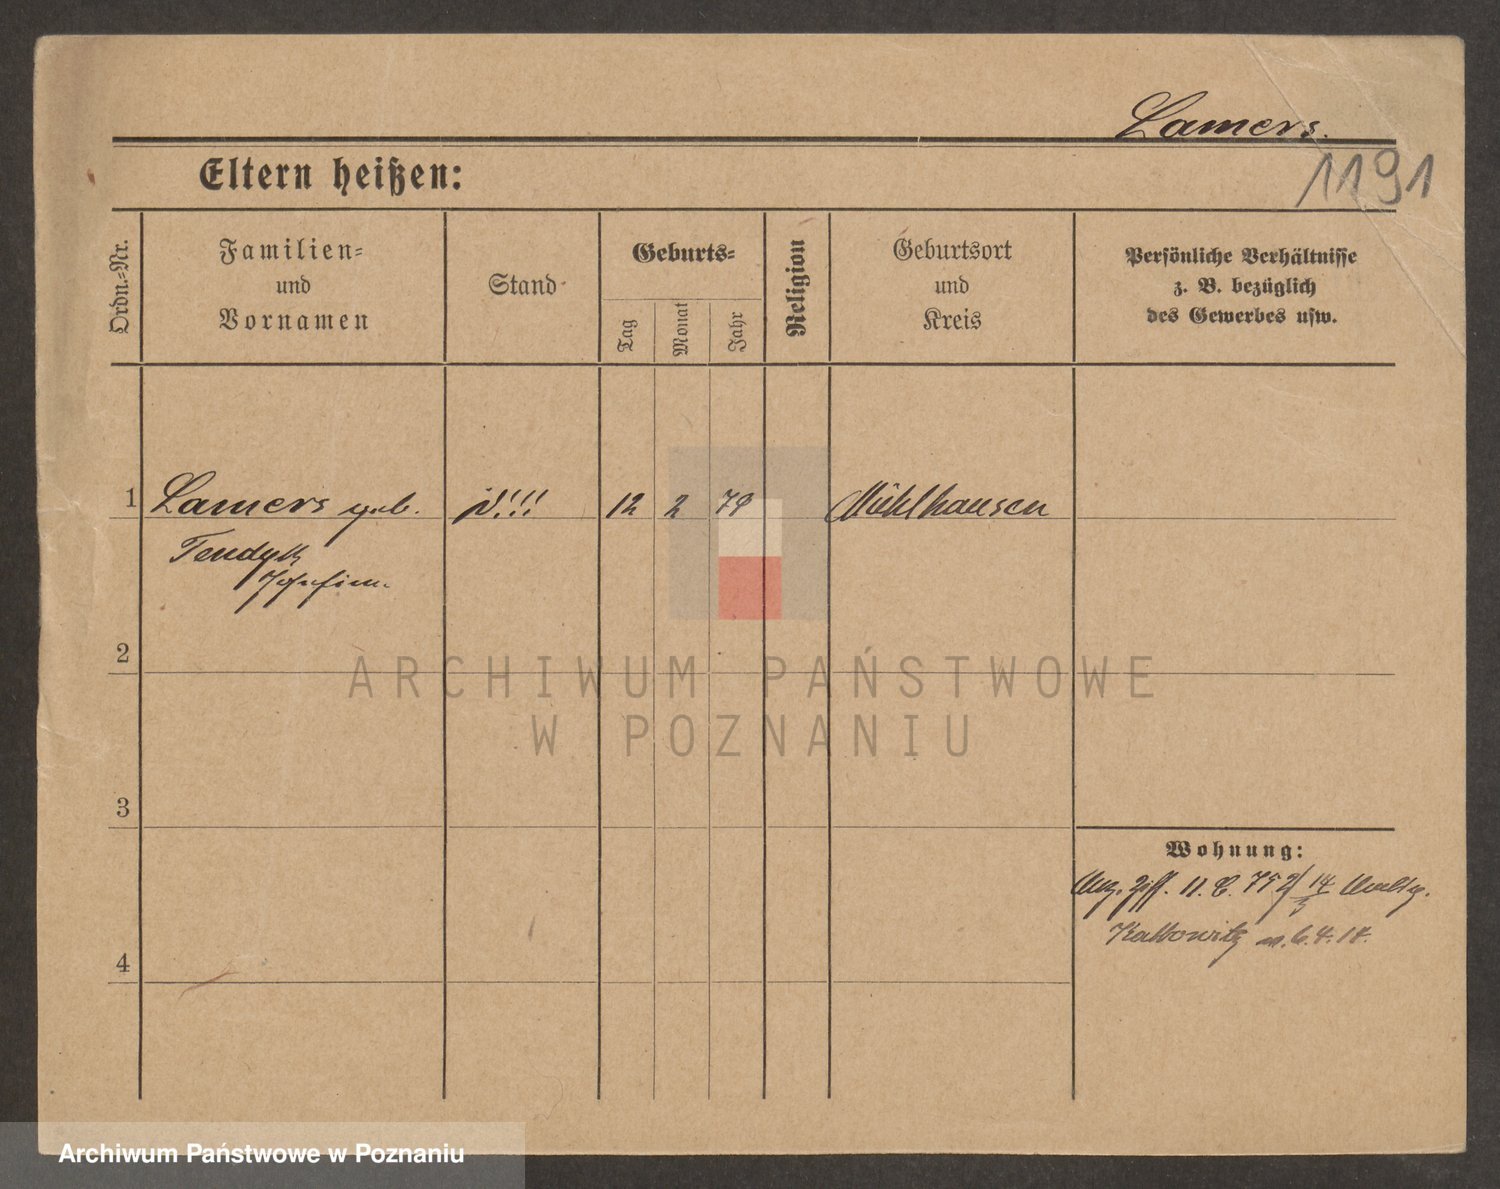 Lamers.
1191
Eltern heißen:
Ordn.-Nr.
Familien-
und
Vornamen
Stand
Geburts-
Tag
Monat
Jahr
Religion
Geburtsort
und
Kreis
Persönliche Verhältnisse
z. B. bezüglich
des Gewerbes usw.
1 Lamers geb. 12 2 79 Mühlhausen
Tendyk
Josefine.
2
ARCHIWUM PAŃSTWOWE
W POZNANIU
3
Wohnung:
Anz. Ziff. 11. C. 752/14
Kattowitz 6.4.14.
4
Archiwum Państwowe w Poznaniu